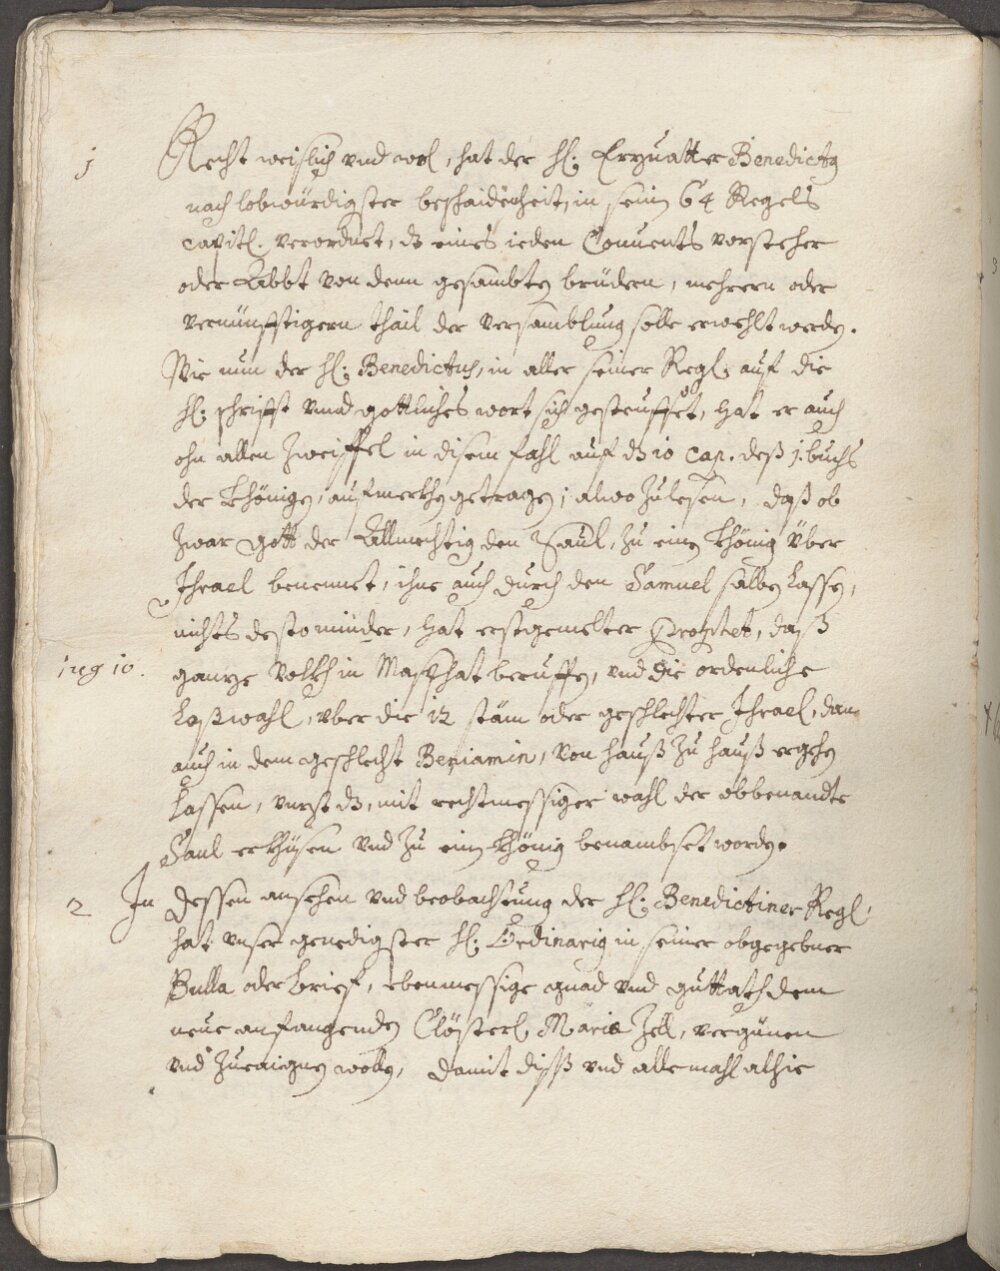 1 Recht weislich vnd wol, hat der hl: Erzuatter Benedictus
nach lobwürdigster beschaidenheit, in seim 64 Regels
capitl. verordnet, dz eines ieden Conuents vorsteher
oder Abbt von denn gesambten brüdern, mehrern oder
vernünfftigern thail der versamblung solle erwehlt werden.
Wie nun der hl: Benedictus, in aller seiner Regl: auf die
hl: schrifft vnnd gottliches wort sich gesteuffet, hat er auch
ohn allen Zweiffel in disem fahl auf dz 10 cap. deß 1. buchs
der Khönigen, aufmerkhen getragen; alwo Zulesen, daß ob
Zwar gott der Allmechtig den Saul, Zu eim Khönig über
Ihrael benennet, ihne auch durch den Samuel salben lassen,
nichts destominder, hat erstgemelter Prophet, daß
1 reg 10. ganze Volkh in Masphat beruffen, vnd die ordenliche
Loßwahl, vber die 12 stäm oder geschlechter Ihrael, dan
auch in dem geschlecht Beniamin, von hauß Zu hauß ergehen
lassen, vnzt dz, mit rechtmessiger wahl der obbenandte
Saul erkhisen vnd Zu eim Khönig benambset worden.
2 In dessen ansehen vnd beobachtung der hl: Benedictiner Regl:
hat vnser genedigster hl: Ordinarius in seiner obgegebner
Bulla oder brief, ebenmessige gnad vnd gutthat dem
neue anfangenden Clösterl Mariæ Zell, vergünen
vnd Zueaignen wollen, damit diß vnd alle mahl alhie